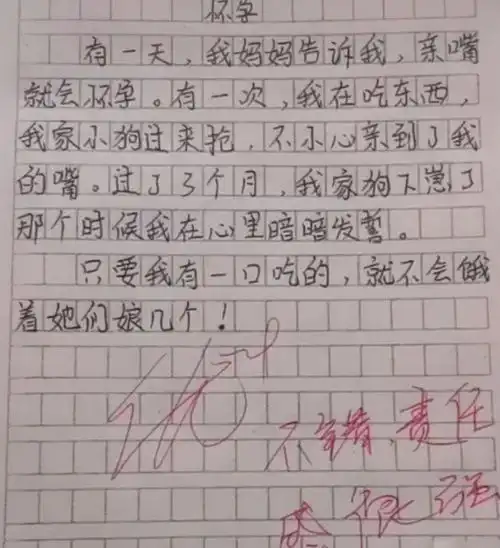 怀孕
有一天，我妈妈告诉我，亲嘴
就会怀孕。有一次，我在吃东西，
我家小狗过来抢，不小心亲到了我
的嘴。过了3个月，我家狗下崽了
那个时候我在心里暗暗发誓。
只要我有一口吃的，就不会饿
着她们娘几个！
优
不错，责任
感很强